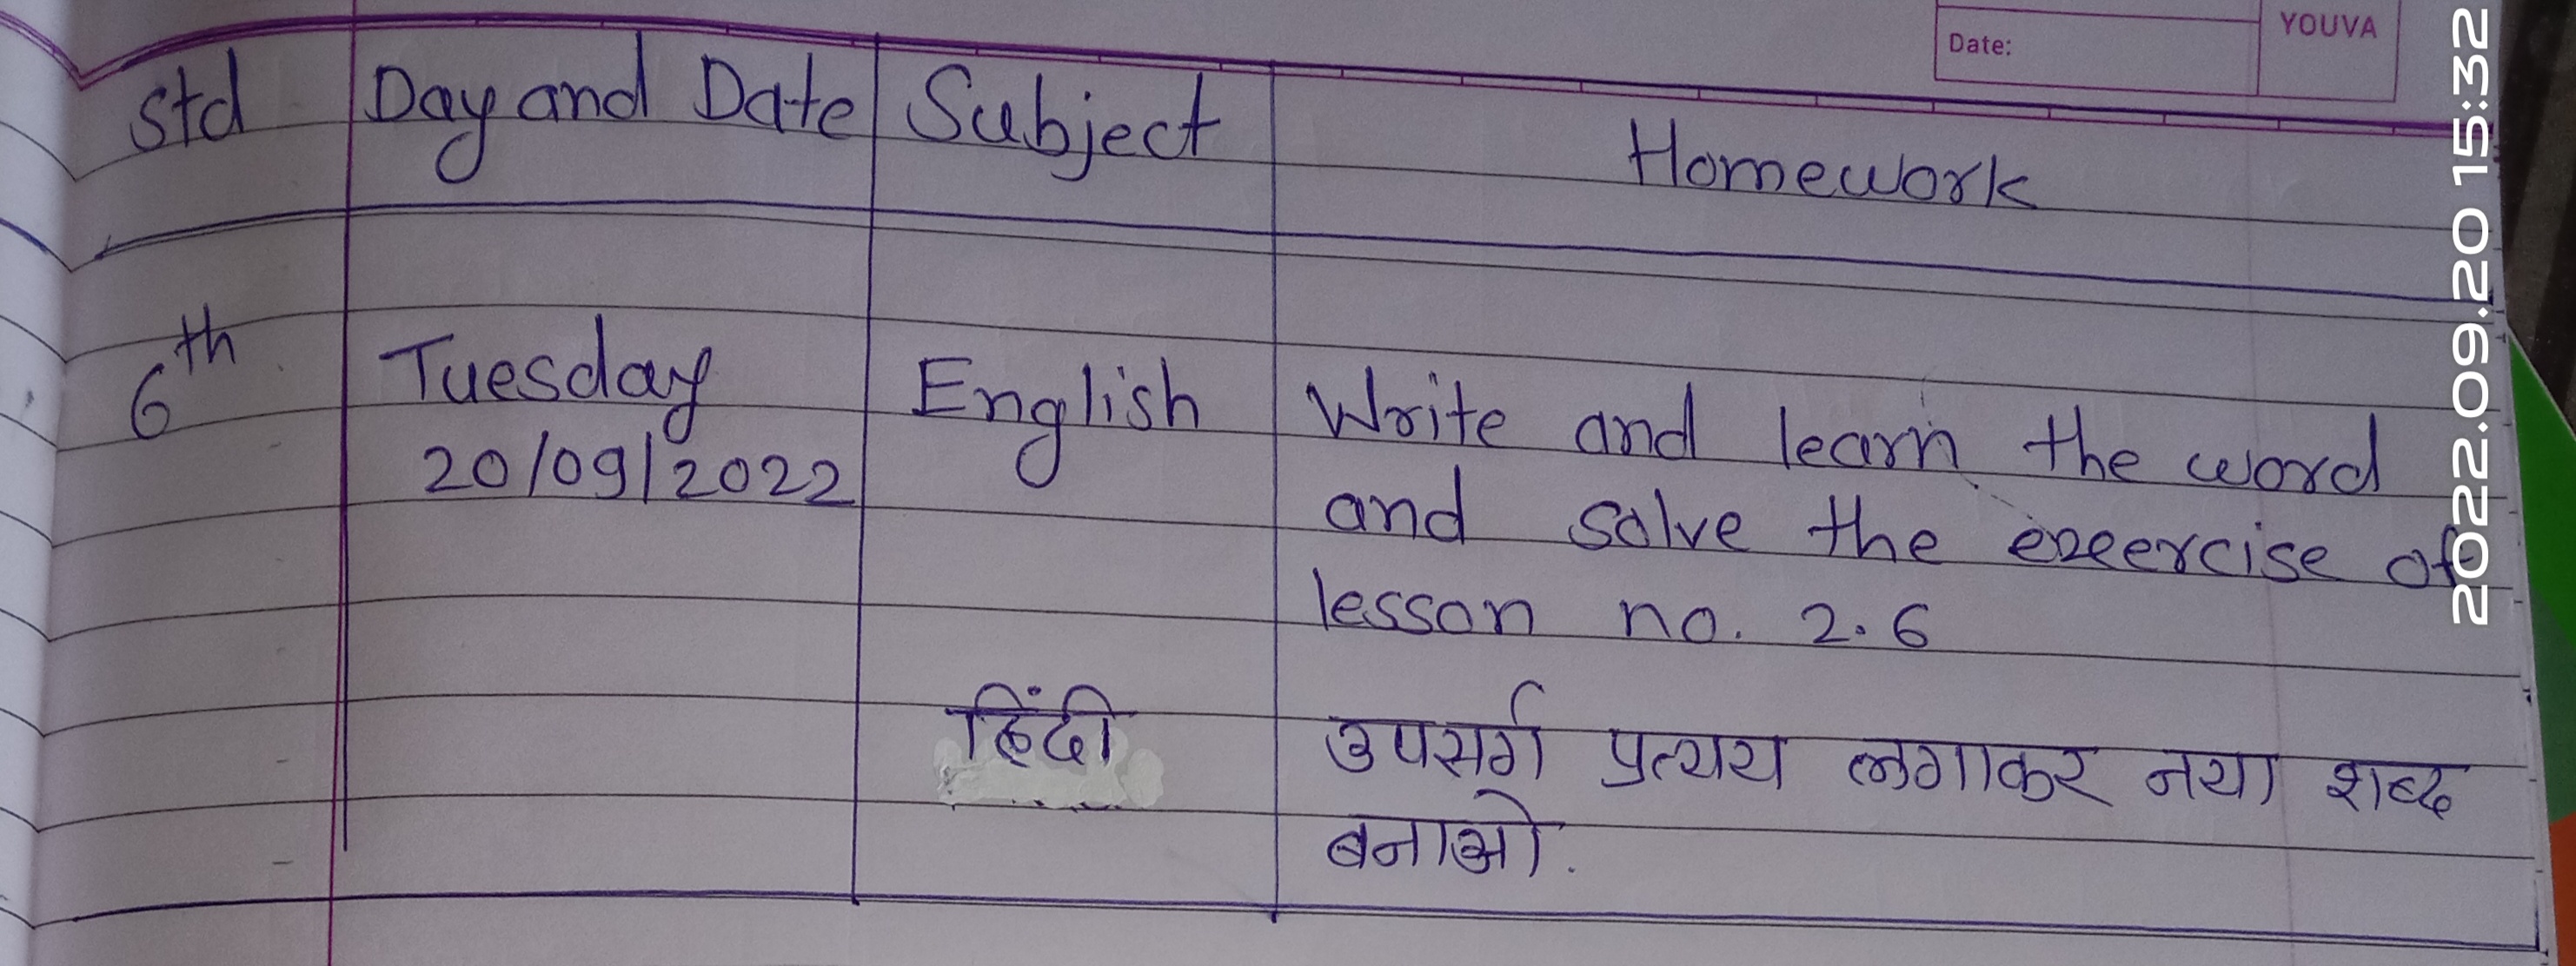 YOUVA
Date:
Std Day and Date Subject Homework
6th Tuesday English Write and learn the word
20/09/2022 and solve the exercise of
lesson no. 2.6
हिंदी उपसर्ग प्रत्यय लगाकर नया शब्द
बनाओ.
2022.09.20 15:32